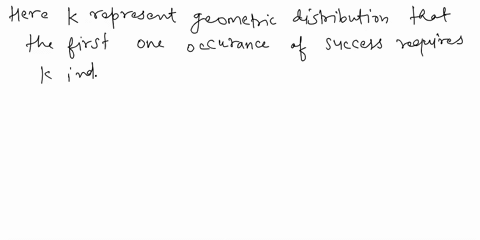 Here k represent geometric distribution that
the first one occurance of success requires
k ind.